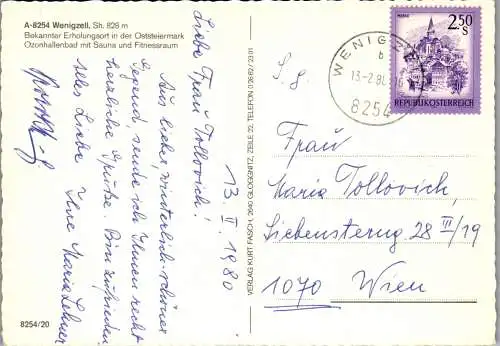 A-8254 Wenigzell, Sh. 828 m
Bekannter Erholungsort in der Oststeiermark
Ozonhallenbad mit Sauna und Fitnessraum
13. II. 1980
Liebe Frau Tollovich!
Aus lieber, winterlich-schöner
Gegend sende ich Ihnen recht
herzliche Grüße. Bin zufrieden
Alles Liebe Ihre Maria Lehner
8254/20
VERLAG KURT FASCH, 2640 GLOGGNITZ, ZEILE 22, TELEFON 0 26 62 / 23 01
WENIGZELL
b
13.-2.80
8254
2.50
S
REPUBLIK ÖSTERREICH
S. g.
Frau
Maria Tollovich,
Liebensterug 28 III/19
1070 Wien